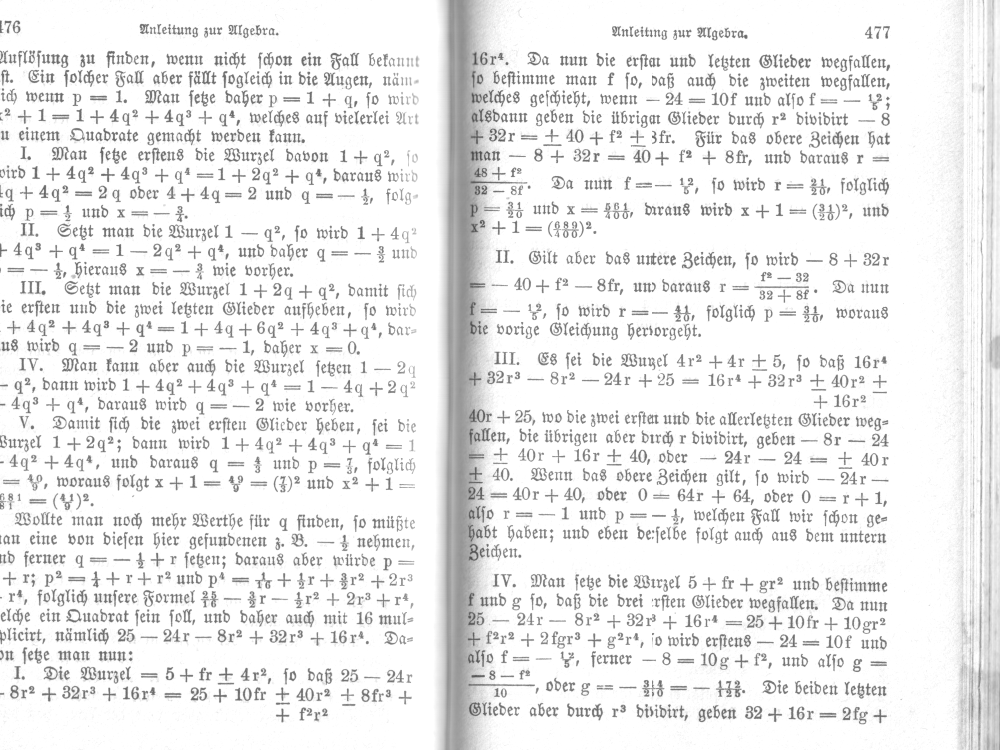 476 Anleitung zur Algebra.
Auflösung zu finden, wenn nicht schon ein Fall bekannt
ist. Ein solcher Fall aber fällt sogleich in die Augen, näm-
lich wenn p = 1. Man setze daher p = 1 + q, so wird
x² + 1 = 1 + 4q² + 4q³ + q⁴, welches auf vielerlei Art
zu einem Quadrate gemacht werden kann.
I. Man setze erstens die Wurzel davon 1 + q², so
wird 1 + 4q² + 4q³ + q⁴ = 1 + 2q² + q⁴, daraus wird
4q + 4q² = 2q oder 4 + 4q = 2 und q = — ½, folg-
lich p = ½ und x = — ¾.
II. Setzt man die Wurzel 1 — q², so wird 1 + 4q²
+ 4q³ + q⁴ = 1 — 2q² + q⁴, und daher q = — 3/2 und
= — ½, hieraus x = — ¾ wie vorher.
III. Setzt man die Wurzel 1 + 2q + q², damit sich
die ersten und die zwei letzten Glieder aufheben, so wird
+ 4q² + 4q³ + q⁴ = 1 + 4q + 6q² + 4q³ + q⁴, dar-
aus wird q = — 2 und p = — 1, daher x = 0.
IV. Man kann aber auch die Wurzel setzen 1 — 2q
— q², dann wird 1 + 4q² + 4q³ + q⁴ = 1 — 4q + 2q²
+ 4q³ + q⁴, daraus wird q = — 2 wie vorher.
V. Damit sich die zwei ersten Glieder heben, sei die
Wurzel 1 + 2q²; dann wird 1 + 4q² + 4q³ + q⁴ = 1
+ 4q² + 4q⁴, und daraus q = 4/3 und p = 7/3, folglich
= 40/9, woraus folgt x + 1 = 49/9 = (7/3)² und x² + 1 =
1681/81 = (41/9)².
Wollte man noch mehr Werthe für q finden, so müßte
man eine von diesen hier gefundenen z. B. — ½ nehmen,
und ferner q = — ½ + r setzen; daraus aber würde p =
+ r; p² = ¼ + r + r² und p⁴ = 1/16 + ½r + 3/2r² + 2r³
+ r⁴, folglich unsere Formel 25/16 — 3/2r — ½r² + 2r³ + r⁴,
welche ein Quadrat sein soll, und daher auch mit 16 mul-
tiplicirt, nämlich 25 — 24r — 8r² + 32r³ + 16r⁴. Da-
von setze man nun:
I. Die Wurzel = 5 + fr ± 4r², so daß 25 — 24r
— 8r² + 32r³ + 16r⁴ = 25 + 10fr ± 40r² ± 8fr³ +
+ f²r²
Anleitung zur Algebra. 477
16r⁴. Da nun die ersten und letzten Glieder wegfallen,
so bestimme man f so, daß auch die zweiten wegfallen,
welches geschieht, wenn — 24 = 10f und also f = — 12/5;
alsdann geben die übrigen Glieder durch r² dividirt — 8
+ 32r = ± 40 + f² ± 8fr. Für das obere Zeichen hat
man — 8 + 32r = 40 + f² + 8fr, und daraus r =
48 + f²/32 — 8f. Da nun f = — 12/5, so wird r = 21/20, folglich
p = 31/20 und x = 561/400, daraus wird x + 1 = (31/20)², und
x² + 1 = (689/400)².
II. Gilt aber das untere Zeichen, so wird — 8 + 32r
= — 40 + f² — 8fr, und daraus r = f² — 32/32 + 8f. Da nun
f = — 12/5, so wird r = — 41/20, folglich p = 31/20, woraus
die vorige Gleichung hervorgeht.
III. Es sei die Wurzel 4r² + 4r ± 5, so daß 16r⁴
+ 32r³ — 8r² — 24r + 25 = 16r⁴ + 32r³ ± 40r² ±
+ 16r²
40r + 25, wo die zwei ersten und die allerletzten Glieder weg-
fallen, die übrigen aber durch r dividirt, geben — 8r — 24
= ± 40r + 16r ± 40, oder — 24r — 24 = ± 40r
± 40. Wenn das obere Zeichen gilt, so wird — 24r —
24 = 40r + 40, oder 0 = 64r + 64, oder 0 = r + 1,
also r = — 1 und p = — ½, welchen Fall wir schon ge-
habt haben; und eben derselbe folgt auch aus dem untern
Zeichen.
IV. Man setze die Wurzel 5 + fr + gr² und bestimme
f und g so, daß die drei ersten Glieder wegfallen. Da nun
25 — 24r — 8r² + 32r³ + 16r⁴ = 25 + 10fr + 10gr²
+ f²r² + 2fgr³ + g²r⁴, so wird erstens — 24 = 10f und
also f = — 12/5, ferner — 8 = 10g + f², und also g =
— 8 — f²/10, oder g = — 344/250 = — 172/125. Die beiden letzten
Glieder aber durch r³ dividirt, geben 32 + 16r = 2fg +